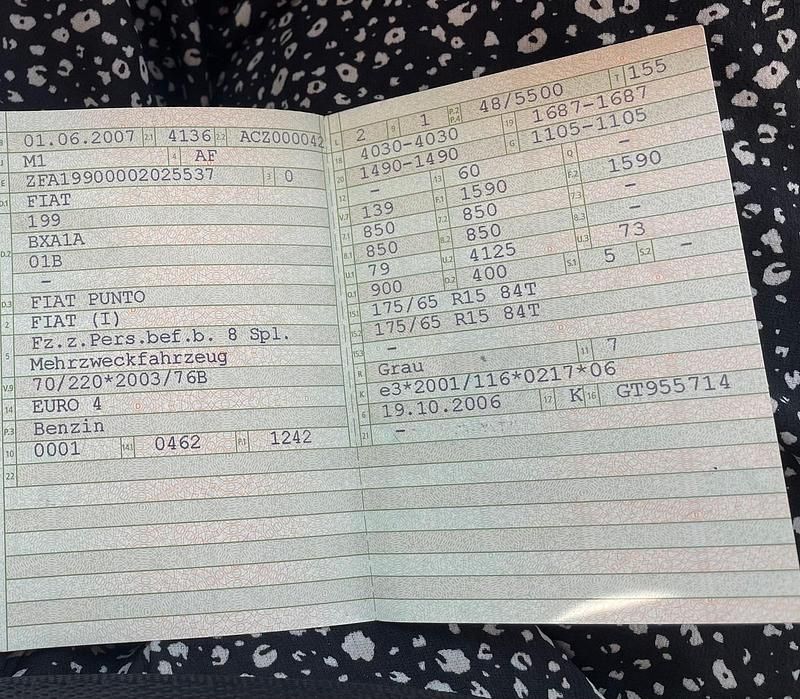 B 01.06.2007 2.1 4136 2.2 ACZ000042
J M1 4 AF
E ZFA19900002025537 3 0
D.1 FIAT
199
D.2 BXA1A
01B
–
D.3 FIAT PUNTO
2 FIAT (I)
Fz.z.Pers.bef.b. 8 Spl.
5 Mehrzweckfahrzeug
V.9 70/220*2003/76B
14 EURO 4
P.3 Benzin
10 0001 14.1 0462 P.1 1242
22
L 2 9 1 P.2 P.4 48/5500 T 155
18 4030-4030 19 1687-1687
20 1490-1490 G 1105-1105
12 – 13 60 Q –
V.7 139 F.1 1590 F.2 1590
7.1 850 7.2 850 7.3 –
8.1 850 8.2 850 8.3 –
U.1 79 U.2 4125 U.3 73
O.1 900 O.2 400 S.1 5 S.2 –
15.1 175/65 R15 84T
15.2 175/65 R15 84T
15.3 –
R Grau 11 7
K e3*2001/116*0217*06
6 19.10.2006 17 K 16 GT955714
21 –